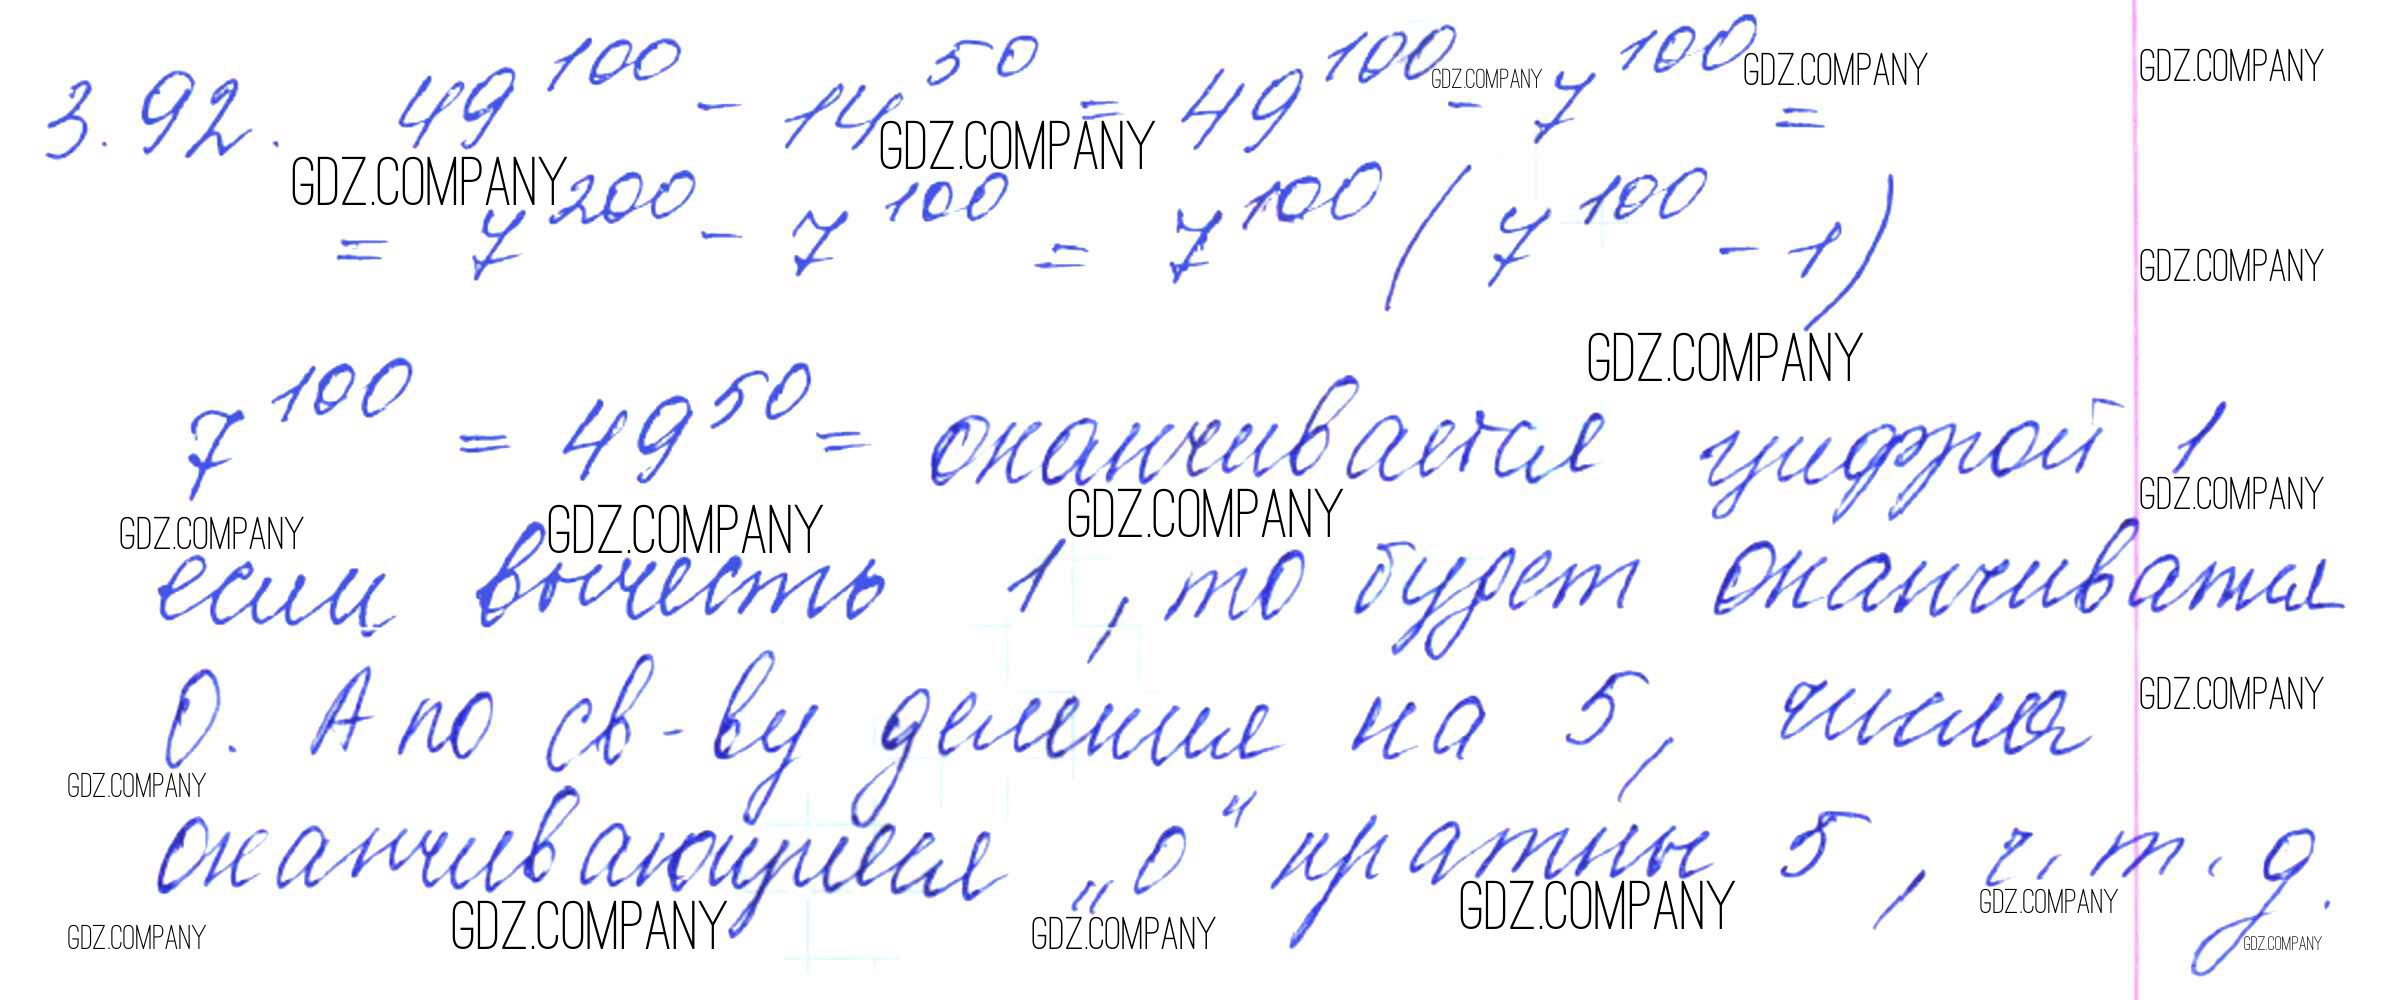 3.92. 49^100 - 14^50 = 49^100 - 7^100 =
GDZ.COMPANY GDZ.COMPANY GDZ.COMPANY GDZ.COMPANY GDZ.COMPANY
= 7^200 - 7^100 = 7^100 (7^100 - 1)
GDZ.COMPANY
GDZ.COMPANY
7^100 = 49^50 = оканчивается цифрой 1
GDZ.COMPANY GDZ.COMPANY GDZ.COMPANY GDZ.COMPANY
если вычесть 1, то будет оканчиватся
0. А по св-ву деления на 5, числа
GDZ.COMPANY
GDZ.COMPANY
оканчивающиеся „0“ кратны 5, ч.т.д.
GDZ.COMPANY GDZ.COMPANY GDZ.COMPANY GDZ.COMPANY GDZ.COMPANY GDZ.COMPANY